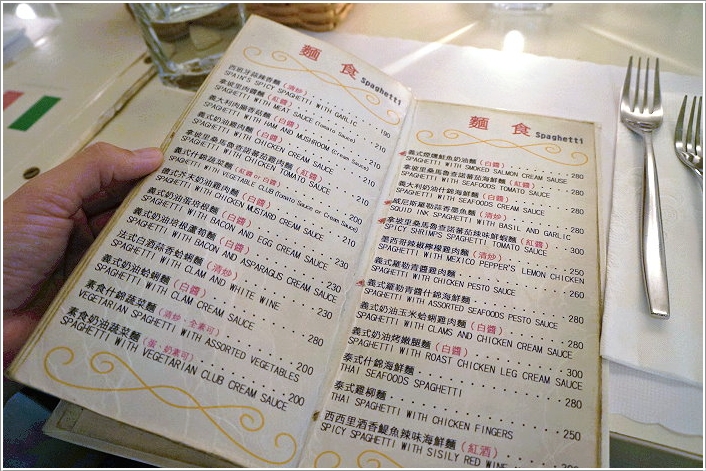 麵 食 Spaghetti
西班牙蒜辣香麵(清炒)
SPAIN'S SPICY SPAGHETTI WITH GARLIC 190
拿坡里肉醬麵(紅醬)
SPAGHETTI WITH MEAT SAUCE (Tomato Sauce) 210
義大利肉腸香菇麵(白醬)
SPAGHETTI WITH HAM AND MUSHROOM (Cream Sauce) 210
義式奶油雞肉麵(白醬)
SPAGHETTI WITH CHICKEN CREAM SAUCE 210
拿坡里桑馬魯查諾蕃茄雞肉麵(紅醬)
SPAGHETTI WITH CHICKEN TOMATO SAUCE 210
義式什錦蔬菜麵(紅醬or白醬)
SPAGHETTI WITH VEGETABLE CLUB (Tomato Sauce or Cream Sauce) 200
德式芥末奶油雞肉麵(白醬)
SPAGHETTI WITH CHICKEN MUSTARD CREAM SAUCE 210
義式奶油蛋培根麵(白醬)
SPAGHETTI WITH BACON AND EGG CREAM SAUCE 230
義式奶油培根蘆筍麵(白醬)
SPAGHETTI WITH BACON AND ASPARAGUS CREAM SAUCE 230
法式白酒蒜香蛤蜊麵(清炒)
SPAGHETTI WITH CLAM AND WHITE WINE 230
義式奶油蛤蜊麵(白醬)
SPAGHETTI WITH CLAM CREAM SAUCE 280
素食什錦蔬菜麵(清炒,全素可)
VEGETARIAN SPAGHETTI WITH ASSORTED VEGETABLES 200
素食奶油蔬菜麵(蛋、奶素可)
SPAGHETTI WITH VEGETARIAN CLUB CREAM SAUCE 200
麵 食 Spaghetti
義式煙燻鮭魚奶油麵(白醬)
SPAGHETTI WITH SMOKED SALMON CREAM SAUSE 280
拿坡里桑馬魯查諾蕃茄海鮮麵(紅醬)
SPAGHETTI WITH SEAFOODS TOMATO SAUCE 280
義大利奶油什錦海鮮麵(白醬)
SPAGHETTI WITH SEAFOODS CREAM SAUCE 280
威尼斯羅勒蒜香墨魚麵(清炒)
SQUID INK SPAGHETTI WITH BASIL AND GARLIC 280
拿坡里桑馬魯查諾蕃茄辣味鮮蝦麵(紅醬)
SPICY SHRIMPS SPAGHETTI TOMATO SAUCE 300
墨西哥辣椒檸檬雞肉麵(清炒)
SPAGHETTI WITH MEXICO PEPPER'S LEMON CHICKEN 250
義式羅勒青醬雞肉麵
SPAGHETTI WITH CHICKEN PESTO SAUCE 260
義式羅勒青醬什錦海鮮麵
SPAGHETTI WITH ASSORTED SEAFOODS PESTO SAUCE 280
義式奶油玉米蛤蜊雞肉麵(白醬)
SPAGHETTI WITH CLAMS AND CHICKEN CREAM SAUCE 280
義式奶油烤嫩腿麵(白醬)
SPAGHETTI WITH ROAST CHICKEN LEG CREAM SAUCE 300
泰式什錦海鮮麵
THAI SEAFOODS SPAGHETTI 280
泰式雞柳麵
THAI SPAGHETTI WITH CHICKEN FINGERS 250
西西里酒香鯷魚辣味海鮮麵(紅酒)
SPICY SPAGHETTI WITH SISILY RED WINE 300